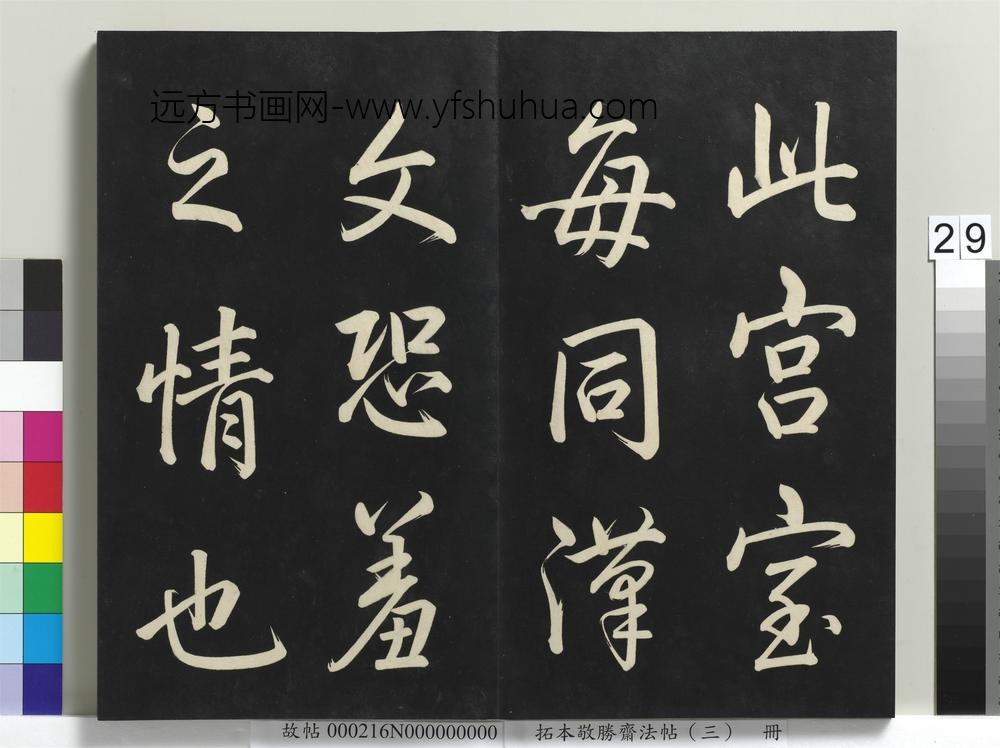 远方书画网-www.yfshuhua.com
此宫室
每同漢
文恐羞
之情也
29
故帖 000216N000000000
拓本敬勝齋法帖（三） 冊